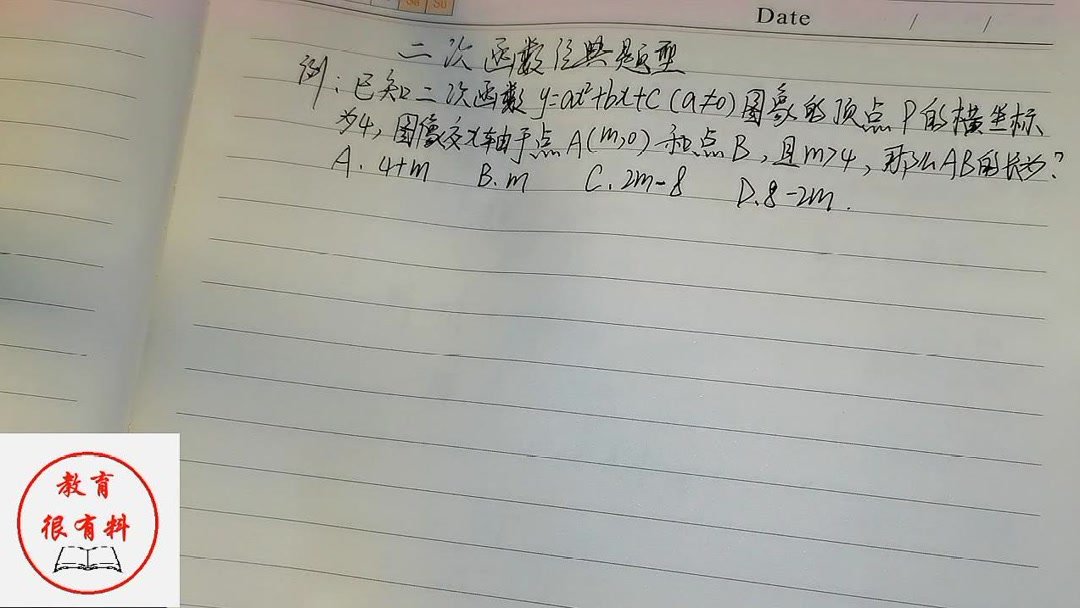 Date / /
二次函数经典题型
例:已知二次函数y=ax²+bx+c(a≠0)图象的顶点P的横坐标
为4,图像交x轴于点A(m,0)和点B,且m>4,那么AB的长为?
A. 4+m B. m C. 2m-8 D. 8-2m.
教育
很有料